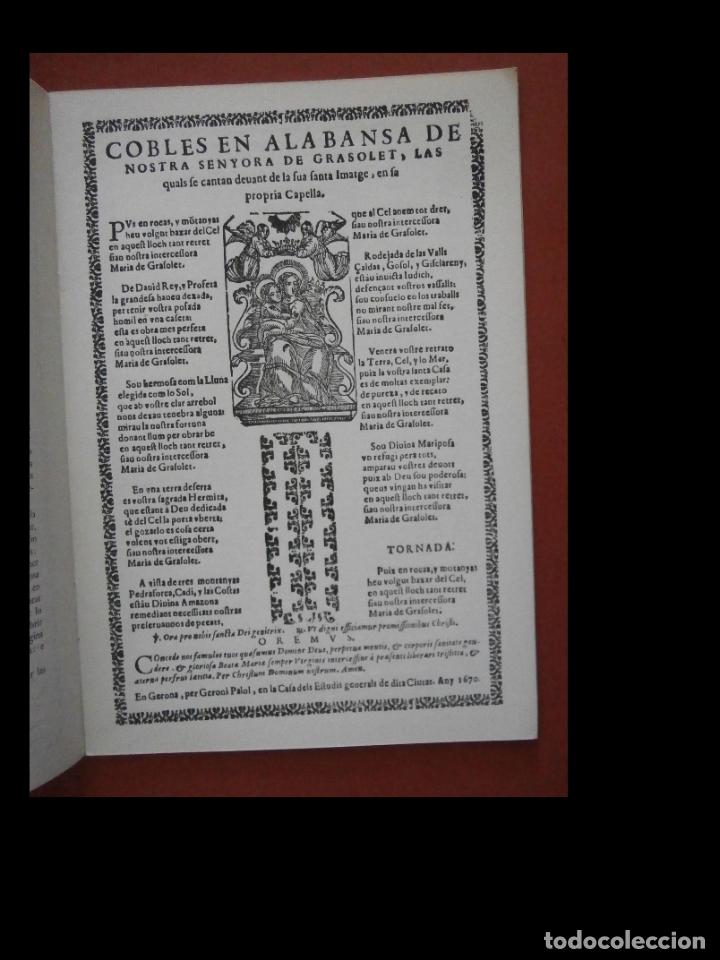 COBLES EN ALABANSA DE
NOSTRA SENYORA DE GRASOLET, LAS
quals se cantan deuant de la sua santa Imatge, en sa
propria Capella.
PVs en rocas, y mõtanyas
heu volgut baxar del Cel
en aquest lloch tant retret
siau nostra intercessora
Maria de Grasolet.
De Dauid Rey, y Profeta
la grandesa haueu dexada,
per tenir vostra posada
homil en vna caseta:
esta es obra mes perfeta
en aquest lloch tant retret,
siau nostra intercessora
Maria de Grasolet.
Sou hermosa com la Lluna
elegida com lo Sol,
que ab vostre clar arrebol
nons dexau tenebra alguna:
mirau la nostra fortuna
donant llum per obrar be
en aquest lloch tant retret,
siau nostra intercessora
Maria de Grasolet.
En vna terra deserta
es vostra sagrada Hermita,
que estant à Deu dedicada
tè del Cel la porta vberta;
el gozarlo es cosa certa
volent vos estiga obert,
siau nostra intercessora
Maria de Grasolet.
A vista de tres montanyas
Pedraforca, Cadi, y las Costas
estàu Diuina Amazona
remediant necessitats nostras
preseruaunos de pecats,
que al Cel anem tot dret,
siau nostra intercessora
Maria de Grasolet.
Rodejada de las Valls
Çaldas, Gosol, y Gisclareny,
estàu inuicta Iudich,
defençant vostros vassalls:
sou consuelo en los traballs
no mirant nostre mal fet,
siau nostra intercessora
Maria de Grasolet.
Venera vostre retrato
la Terra, Cel, y lo Mar,
puix la vostra santa Casa
es de moltas exemplar:
de pureza, y de recato
en aquest lloch tant retret,
siau nostra intercessora
Maria de Grasolet.
Sou Diuina Mariposa
vn refugi pera tots,
amparau vostres deuots
puix ab Deu sou poderosa:
queus vingan ha visitar
en aquest lloch tant retret,
siau nostra intercessora
Maria de Grasolet.
TORNADA:
Puix en rocas, y mutanyas
heu volgut baxar del Cel,
en aquest lloch tant retret
siau nostra intercessora
Maria de Grasolet.
℣. Ora pro nobis sancta Dei genitrix. ℟. Vt digni efficiamur promissionibus Christi.
OREMVS.
Concede nos famulos tuos quæsumus Domine Deus, perpetua mentis, & corporis sanitate gau-
dere. & gloriosa Beata Mariæ semper Virginis intercessione à præsenti liberari tristitia, &
æterna perfrui lætitia. Per Christum Dominum nostrum. Amen.
En Gerona, per Geroni Palol, en la Casa dels Estudis generals de dita Ciutat. Any 1670.
todocoleccion
todocoleccion.net